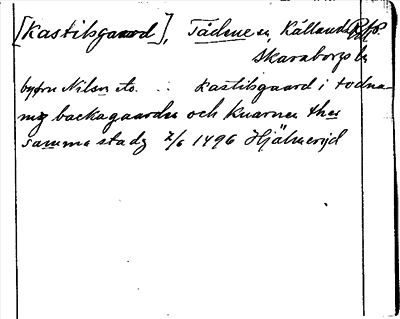 [Kastilsgaard], Tådene sn, Kållands
Skaraborgs l
byørn Nilsn etc. .. Kastilsgaard i todna-
mg backagaardn och knarnen ther
samma stadz 7/6 1496 Hjälmeryd